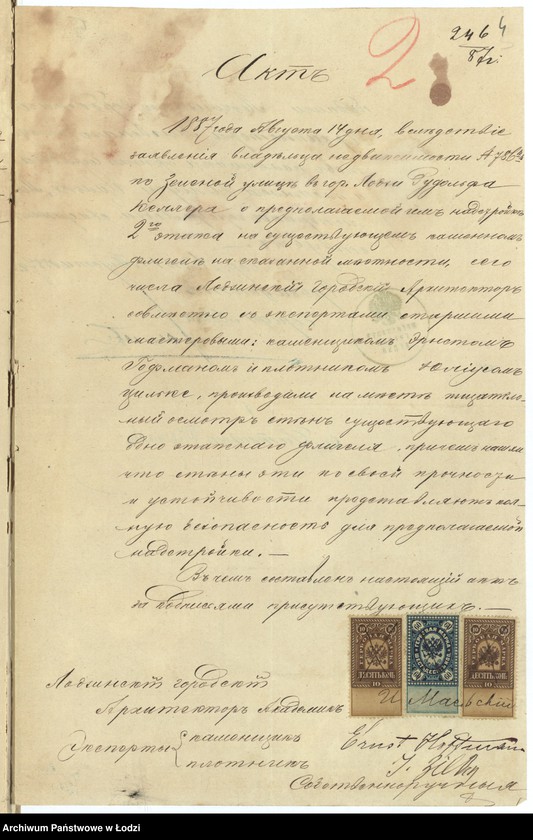 2
246
87г.
4
Актъ
1887 года Августа 14 дня, вслѣдствіе
заявленія владѣльца недвижимости № 786
по Зеленой улицѣ въ гор. Лодзи Рудольфа
Келлера о предполагаемой имъ надстройкѣ
2го этажа на существующемъ каменномъ
флигелѣ на сказанной мѣстности, сего
числа Лодзинскій Городской Архитекторъ
совмѣстно съ экспертами старшими
мастеровыми: каменщикомъ Эрнстомъ
Гофманомъ и плотникомъ Юліусомъ
Цильке, производили на мѣстѣ тщатель-
ный осмотръ стѣнъ существующаго
одно этажнаго флигеля, причемъ нашли
что стѣны эти по своей прочности
и устойчивости представляютъ пол-
ную безопасность для предполагаемой
надстройки. —
Въ чемъ составленъ настоящій актъ
за подписями присутствующихъ. —
Лодзинскій городской
Архитекторъ Академикъ И Маевскій
Эксперты { каменщикъ Ernst Hoffmann
плотникъ J. Zilke
Собственноручныя
Archiwum Państwowe w Łodzi